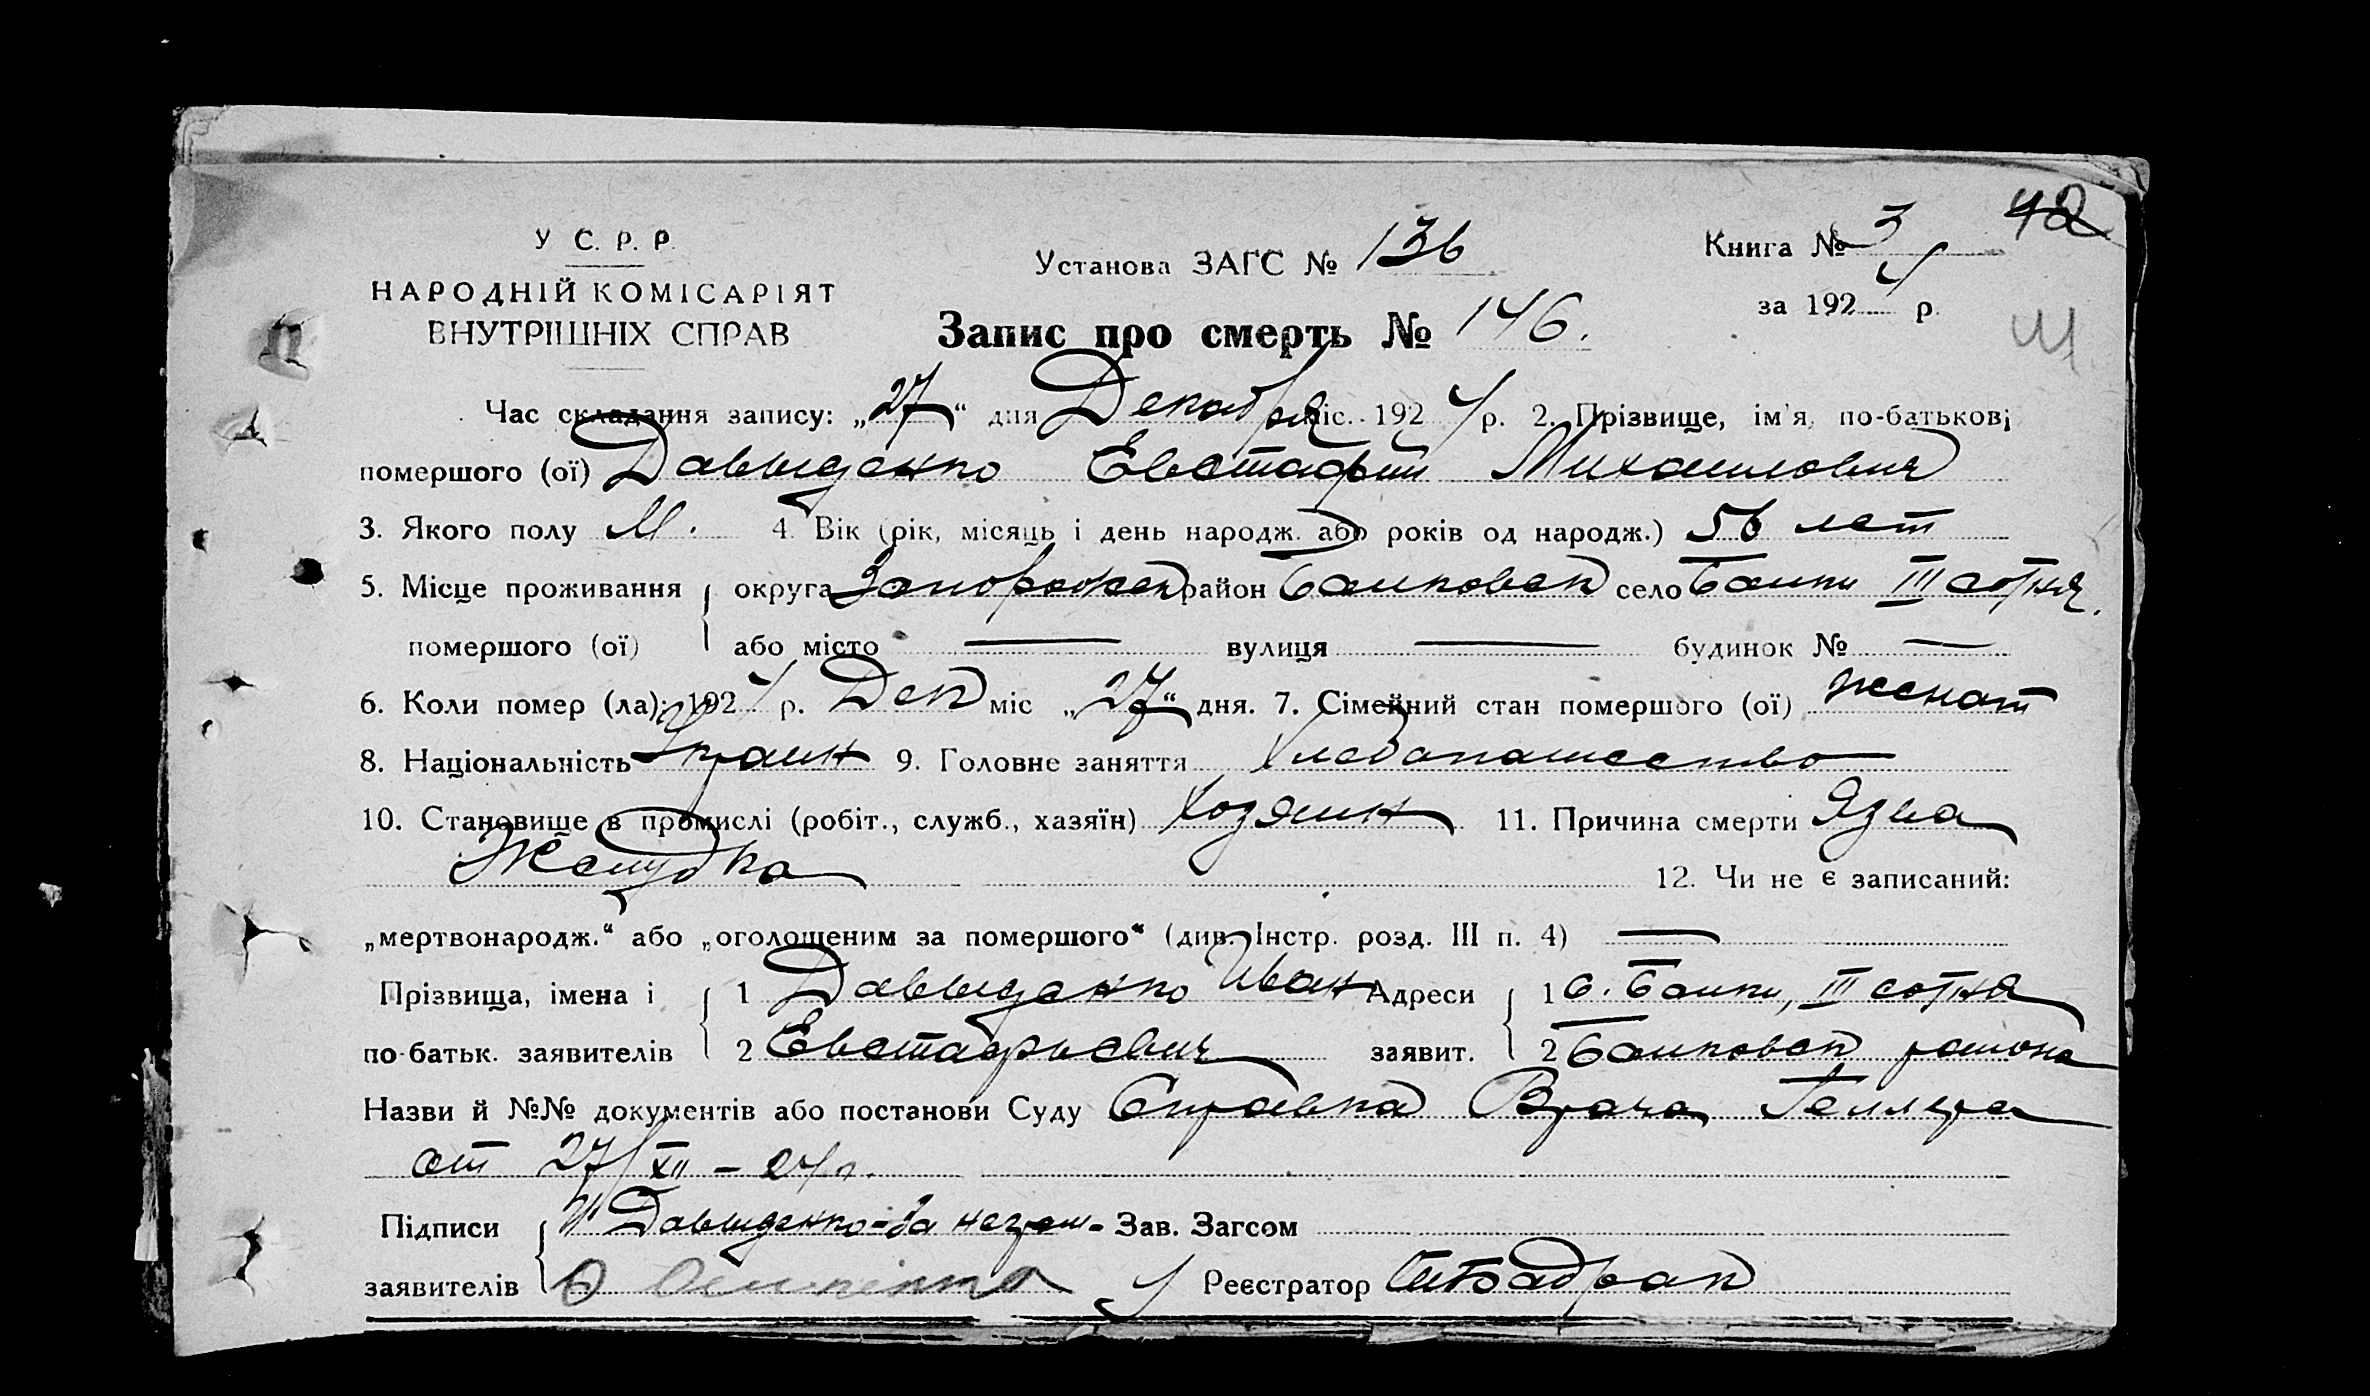 42
У С. Р. Р.
НАРОДНІЙ КОМІСАРІЯТ
ВНУТРІШНІХ СПРАВ
Установа ЗАГС № 136
Книга № 3
за 1924 р.
Запис про смерть № 146.
Час складання запису: „27“ дня Декабря міс. 1924 р. 2. Прізвище, ім'я, по-батькові
помершого (ої) Давыденко Евстафий Михайлович
3. Якого полу М. 4. Вік (рік, місяць і день народж. або років од народж.) 56 лет
5. Місце проживання округа Запорожск район Балковск село Балки III сотня.
помершого (ої) або місто — вулиця — будинок № —
6. Коли помер (ла): 1924 р. Дек міс „27“ дня. 7. Сімейний стан помершого (ої) женат
8. Національність Украин 9. Головне заняття Хлебопашество
10. Становище в промислі (робіт., служб., хазяїн) Хозяин 11. Причина смерти Язва
Желудка 12. Чи не є записаний:
„мертвонародж.“ або „оголошеним за помершого“ (див. Інстр. розд. III п. 4) —
Прізвища, імена і 1 Давыденко Иван Адреси 1 с. Балки, III сотня
по-батьк. заявителів 2 Евстафьевич заявит. 2 Балковск района
Назви й №№ документів або постанови Суду Справка Врача Геллера
от 27/XII – 24 г.
Підписи И Давыденко - за неграм - Зав. Загсом
заявителів Реєстратор